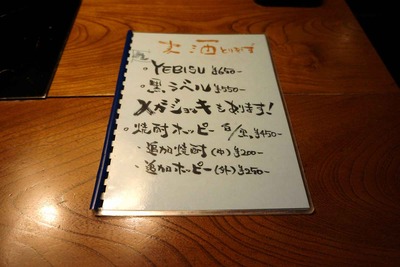 お酒とります
。YEBISU ¥650-
。黒ラベル ¥550-
メガジョッキもあります!
。焼酎ホッピー 白/黒 ¥450-
・追加焼酎(中)¥200-
・追加ホッピー(外)¥250-